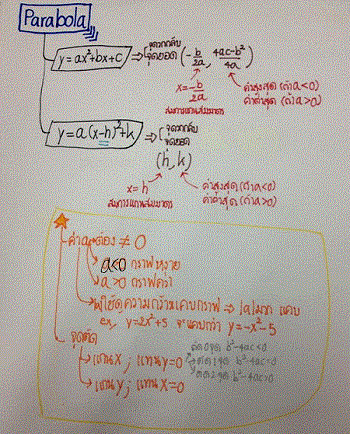 Parabola
y = ax²+bx+c ⇒ จุดวกกลับ
จุดยอด (-b/2a, 4ac-b²/4a)
x = -b/2a
สมการแกนสมมาตร
ค่าสูงสุด (ถ้า a<0)
ค่าต่ำสุด (ถ้า a>0)
y = a(x-h)²+k ⇒ จุดวกกลับ
จุดยอด
(h, k)
x = h
สมการแกนสมมาตร
ค่าสูงสุด (ถ้า a<0)
ค่าต่ำสุด (ถ้า a>0)
ค่า a ต้อง ≠ 0
a<0 กราฟหงาย
a > 0 กราฟคว่ำ
ความกว้างแคบกราฟ ⇒ |a| มาก แคบ
ex, y = 2x²+5 จะแคบกว่า y = -x²-5
จุดตัด
แกน x ; แทน y = 0
แกน y ; แทน x = 0
ตัด 0 จุด b²-4ac<0
ตัด 1 จุด b²-4ac=0
ตัด 2 จุด b²-4ac>0